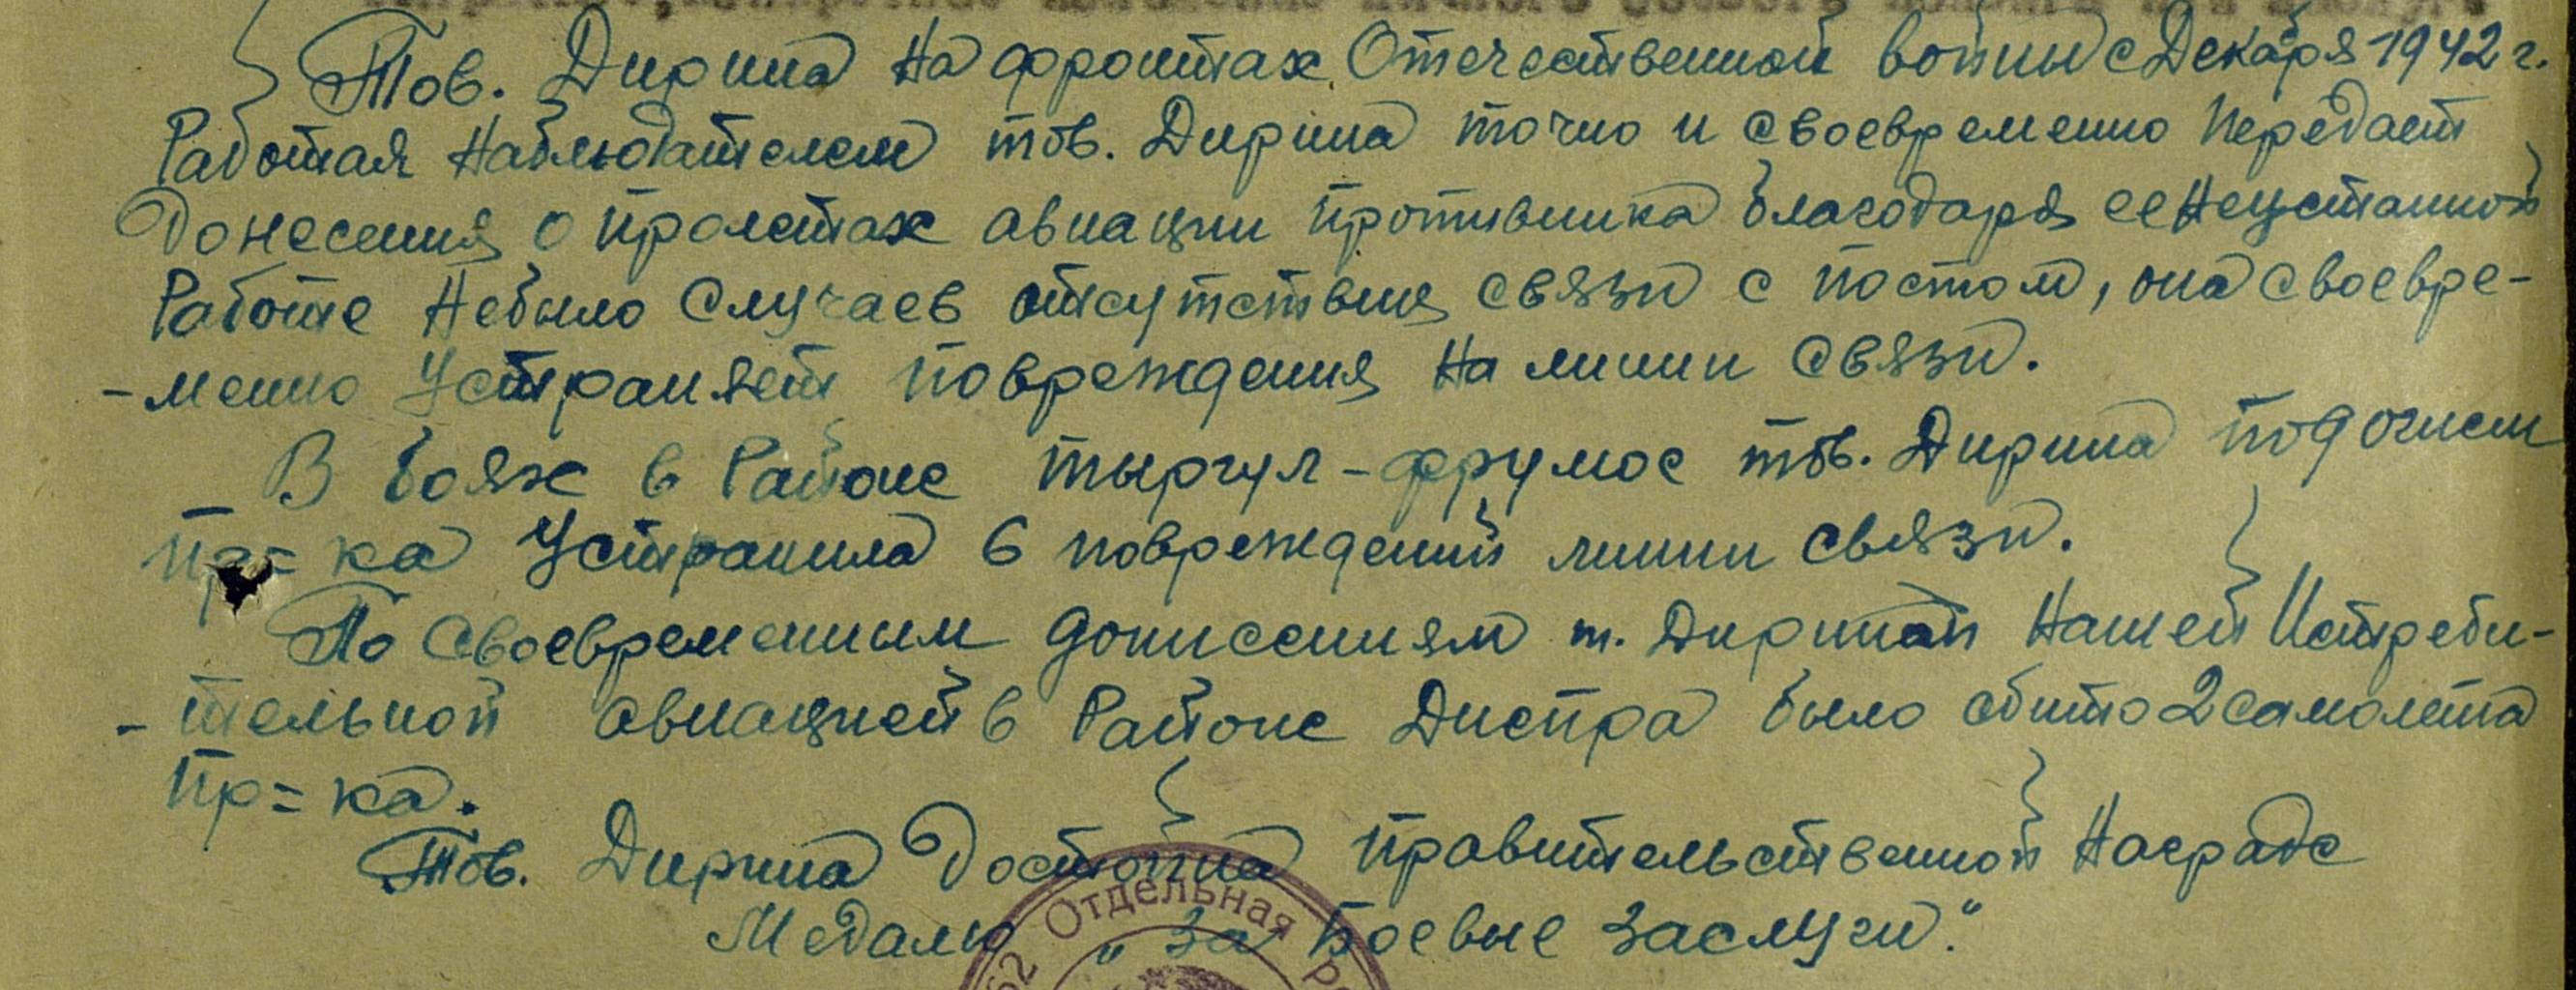 Тов. Дирина на фронтах Отечественной войны с Декабря 1942 г.
Работая наблюдателем тов. Дирина точно и своевременно передает
донесения о пролетах авиации противника благодаря ее неустанной
Работе небыло случаев отсутствия связи с постом, она своевре-
-менно устраняет повреждения на линии связи.
В боях в Районе тыргул-фрумос тов. Дирина под огнем
пр=ка устранила 6 повреждений линии связи.
По своевременным донисениям т. Дириной нашей Истреби-
-тельной авиацией в Районе Днепра было сбито 2 самолета
пр=ка.
Тов. Дирина достойна правительственной награде
Медалю „за Боевые заслуги."
62 Отдельная